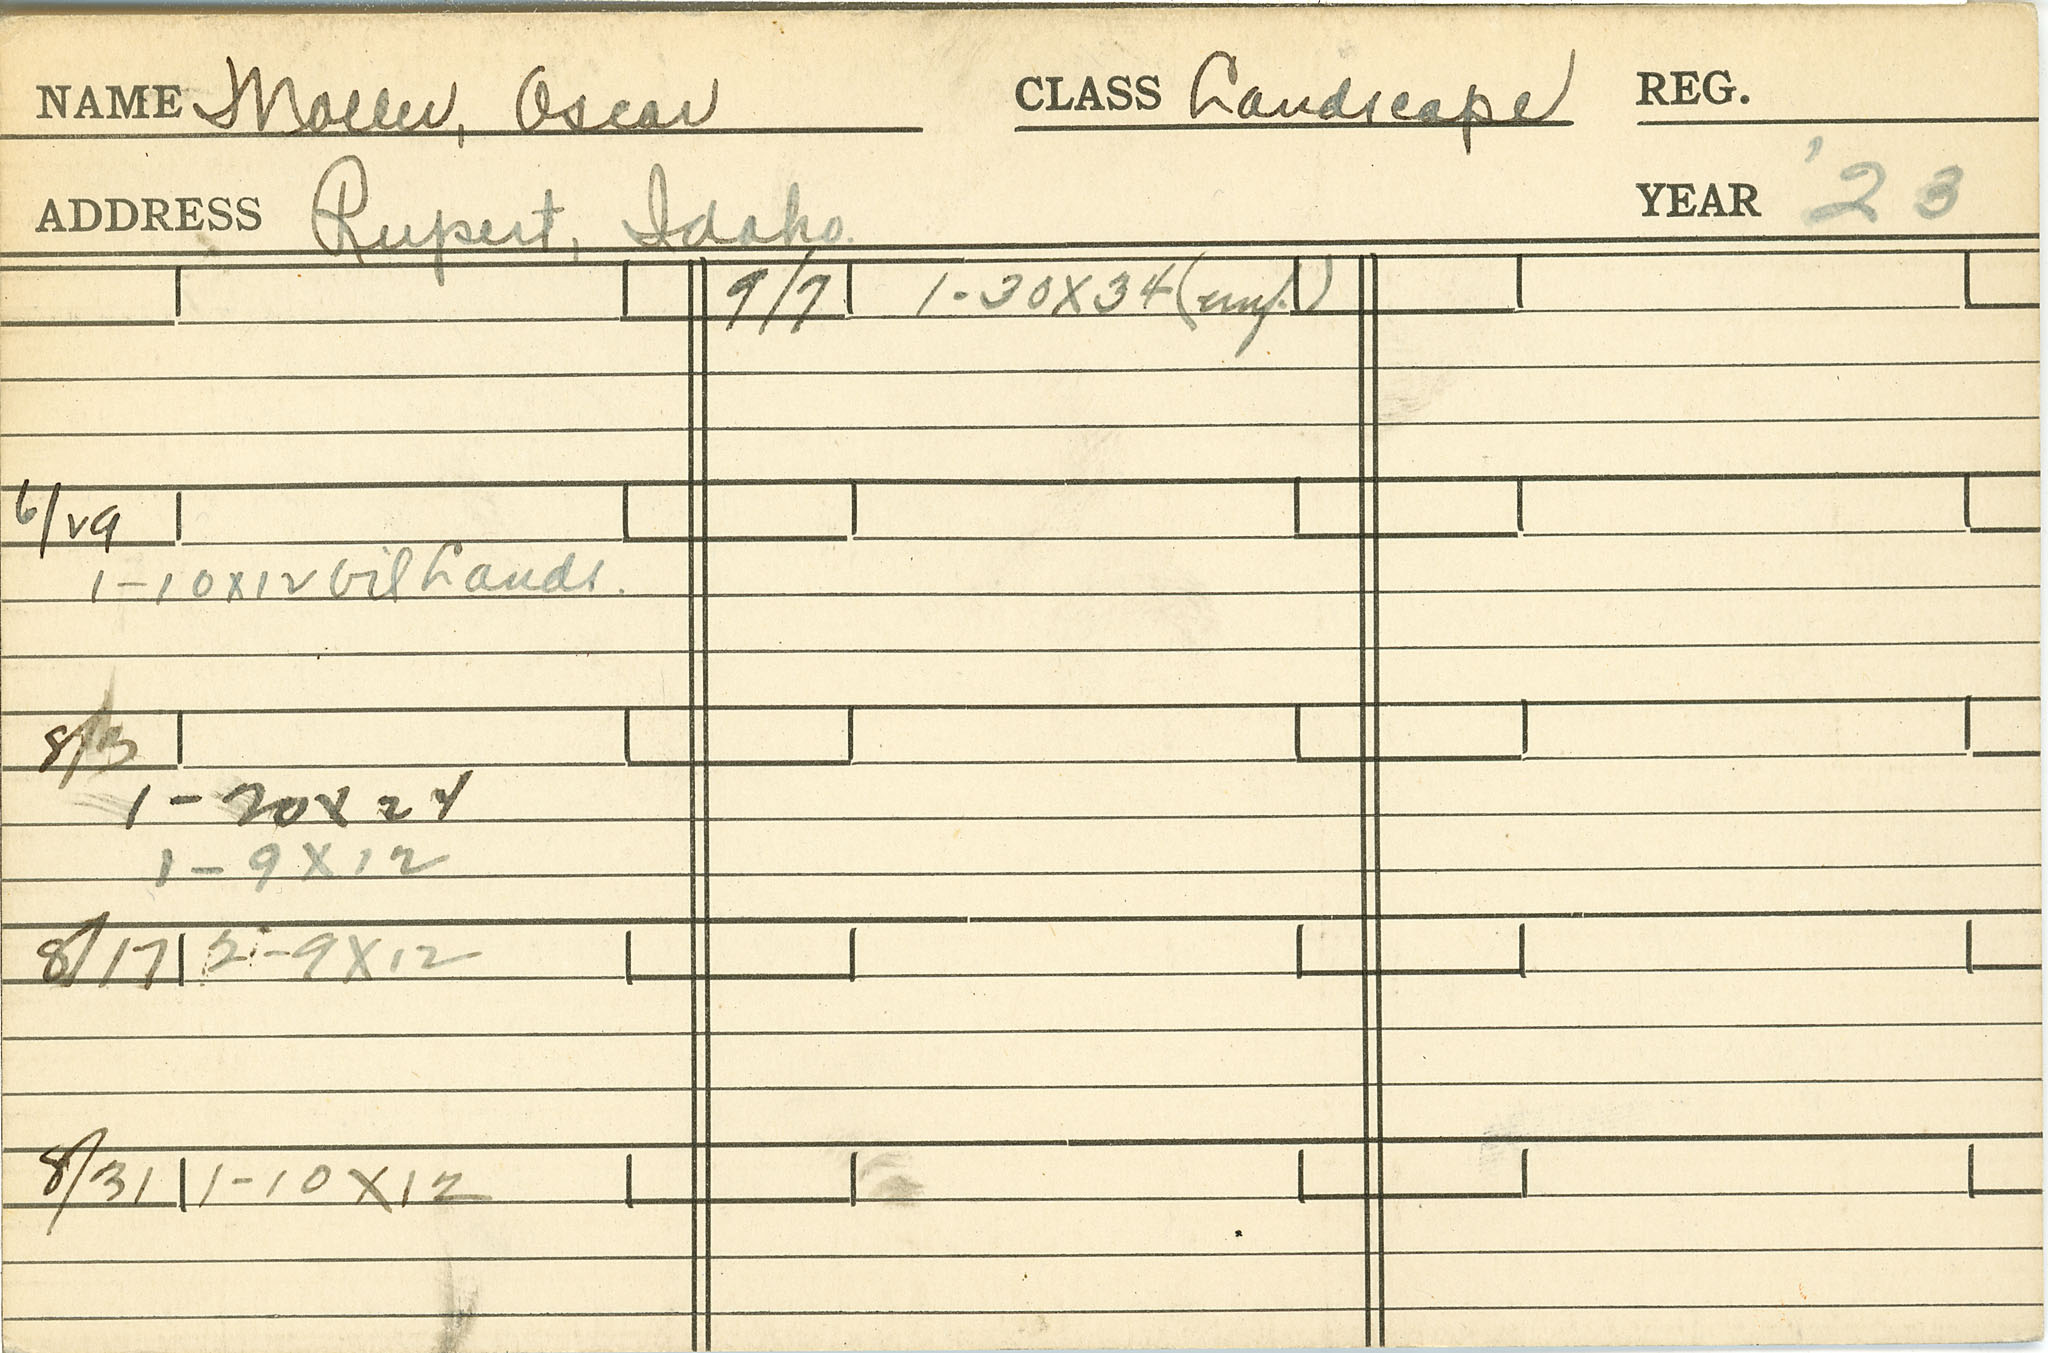 NAME Moller, Oscar CLASS Landscape REG.
ADDRESS Rupert, Idaho. YEAR '23
9/7 1-30X34
6/29
1-10x12 Oil Lands.
8/3
1-20x24
1-9X12
8/17 2-9X12
8/31 1-10X12